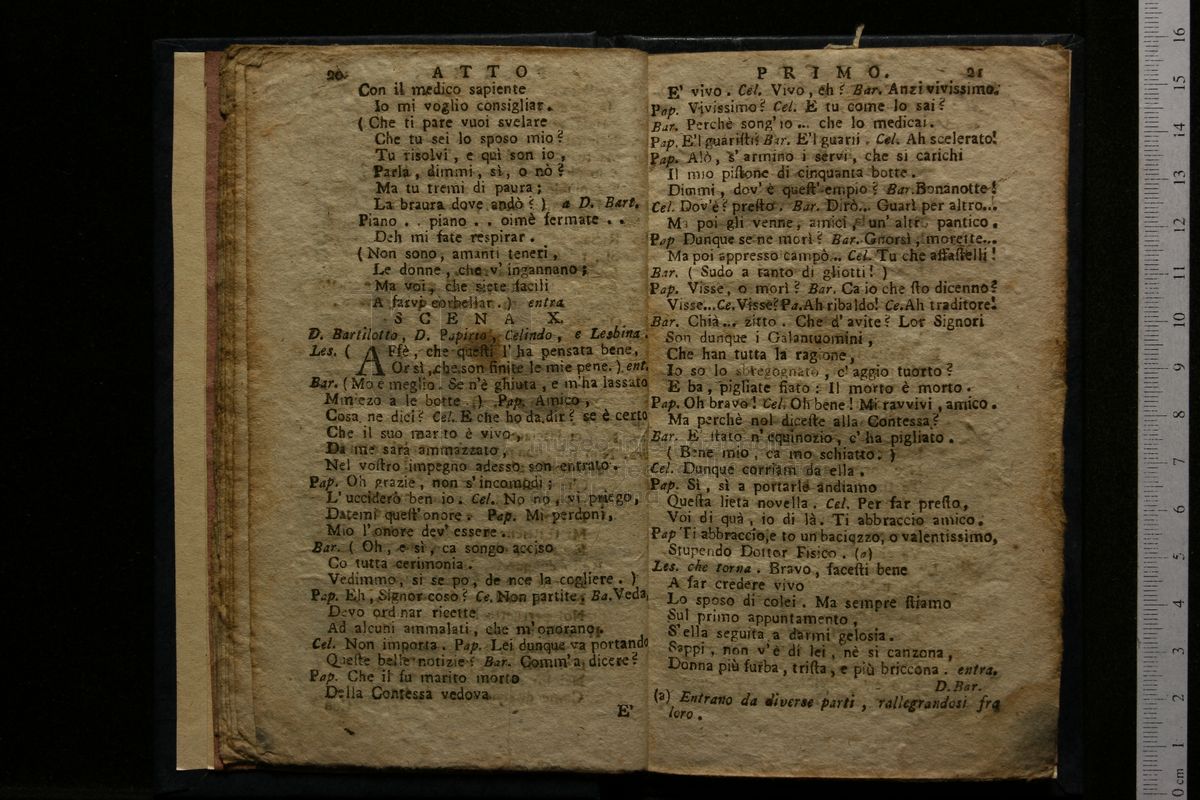 20 ATTO
Con il medico sapiente
Io mi voglio consigliar.
( Che ti pare vuoi svelare
Che tu sei lo sposo mio?
Tu risolvi, e quì son io,
Parla, dimmi, sì, o nò?
Ma tu tremi di paura;
La braura dove andò? ) a D. Bart.
Piano . . piano . . oimè fermate . .
Deh mi fate respirar.
( Non sono, amanti teneri,
Le donne, che v' ingannano;
Ma voi, che siete facili
A farvi corbellar. . ) entra
SCENA X.
D. Bartilotto, D. Papirio, Celindo, e Lesbina.
Les. ( AFfè, che questi l' ha pensata bene,
Or sì, che son finite le mie pene. ) ent.
Bar. ( Mo è meglio. Se n'è ghiuta, e m'ha lassato
Mmezo a le botte. ) Pap. Amico,
Cosa ne dici? Cel. E che ho da dir? se è certo
Che il suo marito è vivo,
Da me sarà ammazzato,
Nel vostro impegno adesso son entrato.
Pap. Oh grazie, non s' incomodi;
L' ucciderò ben io. Cel. No no, vi priego,
Datemi quest' onore. Pap. Mi perdoni,
Mio l' onore dev' essere.
Bar. ( Oh, e sì, ca songo acciso
Co tutta cerimonia.
Vedimmo, si se po, de nce la cogliere. )
Pap. Eh, Signor coso? Ce. Non partite. Ba. Veda,
Devo ordinar ricette
Ad alcuni ammalati, che m' onorano.
Cel. Non importa. Pap. Lei dunque va portando
Queste belle notizie? Bar. Comm' a dicere?
Pap. Che il fu marito morto
Della Contessa vedova
E'
PRIMO. 21
E' vivo. Cel. Vivo, eh? Bar. Anzi vivissimo.
Pap. Vivissimo? Cel. E tu come lo sai?
Bar. Perchè song' io ... che lo medicai.
Pap. E'l guaristi? Bar. E'l guarii. Cel. Ah scelerato!
Pap. Alò, s' armino i servi, che si carichi
Il mio pistone di cinquanta botte.
Dimmi, dov' è quest' empio? Bar. Bonanotte!
Cel. Dov'è? presto. Bar. Dirò... Guarì per altro...
Ma poi gli venne, amici, un' altro pantico.
Pap Dunque se ne morì? Bar. Gnorsì, morette...
Ma poi appresso campò... Cel. Tu che affastelli!
Bar. ( Sudo a tanto di gliotti! )
Pap. Visse, o morì? Bar. Ca io che sto dicenno?
Visse... Ce. Visse? Pa. Ah ribaldo! Ce. Ah traditore!
Bar. Chià... zitto. Che d' avite? Lor Signori
Son dunque i Galantuomini,
Che han tutta la ragione,
Io so lo sbregognato, c' aggio tuorto?
E ba, pigliate fiato: Il morto è morto.
Pap. Oh bravo! Cel. Oh bene! Mi ravvivi, amico.
Ma perchè nol diceste alla Contessa?
Bar. E' stato n' equinozio, c' ha pigliato.
( Bene mio, ca mo schiatto. )
Cel. Dunque corriam da ella.
Pap. Sì, sì a portarle andiamo
Questa lieta novella. Cel. Per far presto,
Voi di quà, io di là. Ti abbraccio amico.
Pap Ti abbraccio, e to un baciozzo, o valentissimo,
Stupendo Dottor Fisico. (a)
Les. che torna. Bravo, facesti bene
A far credere vivo
Lo sposo di colei. Ma sempre stiamo
Sul primo appuntamento,
S' ella seguita a darmi gelosia.
Sappi, non v' è di lei, nè si canzona,
Donna più furba, trista, e più briccona. entra.
D. Bar.
(a) Entrano da diverse parti, rallegrandosi fra
loro.